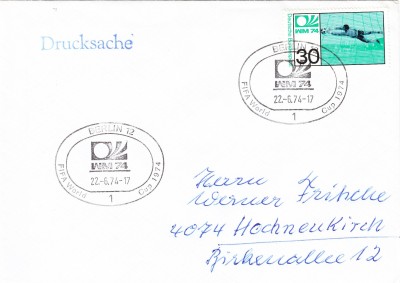 Drucksache
WM 74
30
BERLIN 12
WM 74
22.-6.74-17
FIFA World Cup 1974
1
BERLIN 12
WM 74
22.-6.74-17
FIFA World Cup 1974
1
Herrn
Werner Fritsche
4074 Hochneukirch
Birkenallee 12